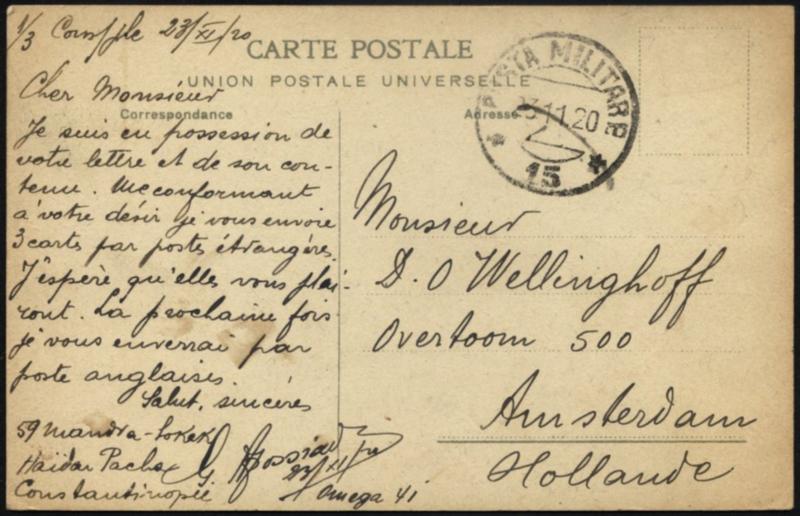 1/3 Cons/ple 23/XI/20
CARTE POSTALE
UNION POSTALE UNIVERSELLE
Correspondance
Adresse
POSTA MILITARE
23.11.20
15
Cher Monsieur
Je suis en possession de
votre lettre et de son con-
tenu. Me conformant
a votre désir je vous envoie
3 cartes par postes étrangères.
J'espère qu'elles vous plai-
ront. La prochaine fois
je vous enverrai par
poste anglaises.
Salut, sincères
59 Mandra-Sokak
Haidar Pacha
Constantinople
G.
23/XI/20
Omega 41
Monsieur
D. O Wellinghoff
Overtoom 500
Amsterdam
Hollande